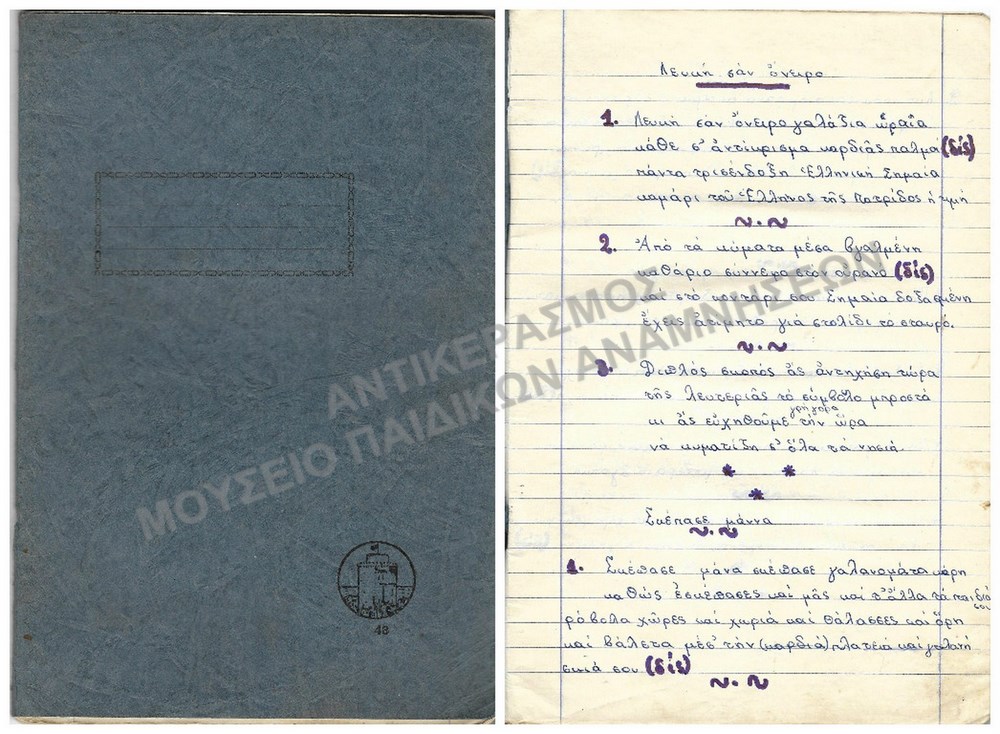 48
Λευκή σάν ὄνειρο
1. Λευκή σάν ὄνειρο γαλάζια ὡραῖα
κάθε σ' ἀντίκρισμα καρδιᾶς παλμοί (δίς)
πάντα τρισένδοξη Ἑλληνική Σημαία
καμάρι τοῦ Ἕλληνος τῆς Πατρίδος ἡ τιμή
2. Ἀπό τά κύματα μέσα βγαλμένη
καθάριο σύννεφο στόν οὐρανό (δίς)
καί στό κοντάρι σου Σημαία δοξασμένη
ἔχεις ἀτίμητο γιά στολίδι τό σταυρό.
3. Διπλός σκοπός ἄς ἀντηχήση τώρα
τῆς λευτεριᾶς τό σύμβολο μπροστά
κι ἄς εὐχηθοῦμε γρήγορα τήν ὥρα
νά κυματίζη σ' ὅλα τά νησιά
Σκέπασε μάννα
1. Σκέπασε μάνα σκέπασε γαλανομάτα κόρη
καθώς ἐσκέπασες καί μᾶς καί τ' ἄλλα τά παιδιά σου
ρόβολα χῶρες καί χωριά καί θάλασσες καί ὄρη
καί βάλετα μέσ' τήν (καρδιά) πλατειά καί γαλανή
σκιά σου (δίς)
ΑΝΤΙΚΕΡΑΣΜΟΣ
ΜΟΥΣΕΙΟ ΠΑΙΔΙΚΩΝ ΑΝΑΜΝΗΣΕΩΝ